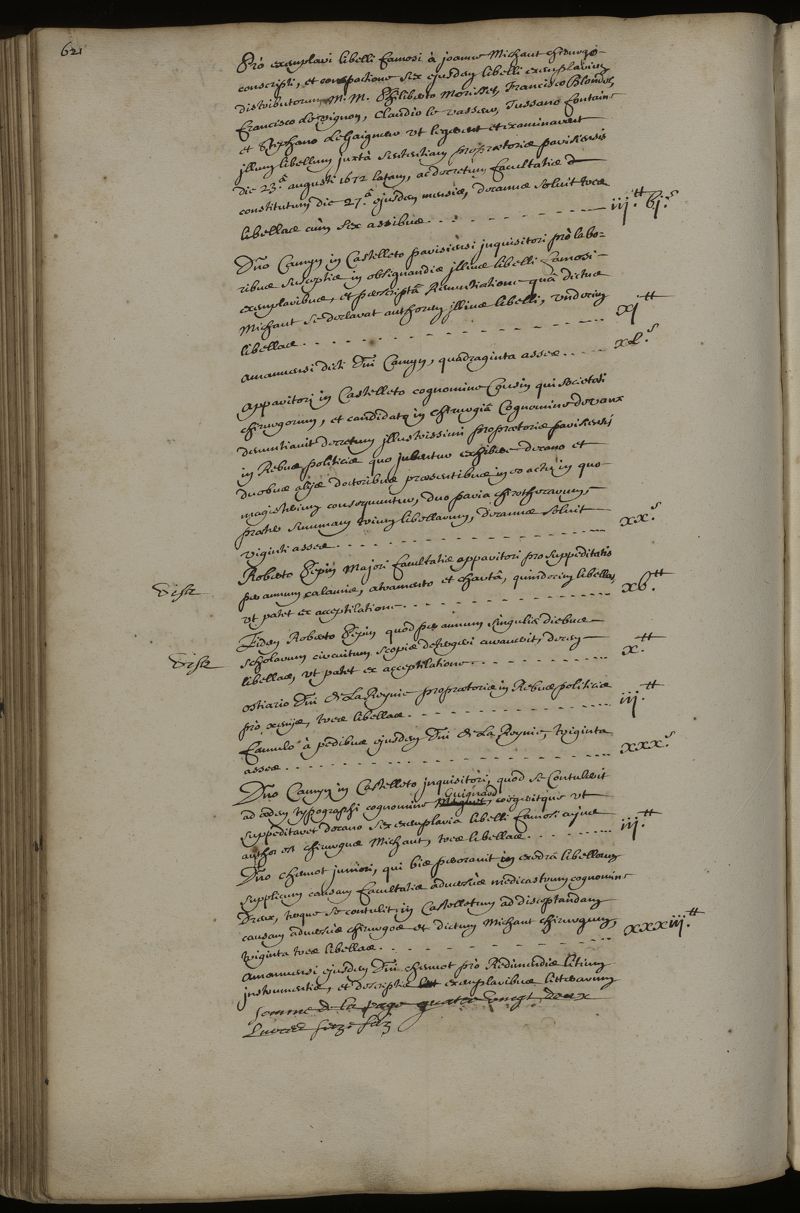 621
Pro exemplari libelli famosi à joanne Michaut chirurgo
conscripti, et comparatione sex ejusdem libelli exemplarium
distributorum M. M. Philiberto Morisset, Francisco Blondel,
Francisco Levignon, Claudio le vasseur, Tussano fontaine
et Stephano Lehaigneur ut legerent et examinarent
jllum libellum juxtà sententiam proprætoris parisiensis
die 23.ª augusti 1672 latam, ac decretum facultatis
constitutum die 27.ª ejusdem mensis, decanus soluit tres
libellas cum sex assibus . . . iij.tt bj.s
Duo Camyn in Castelleto parisiensi jnquisitori prò labo-
ribus susceptis in obsignandis jllius libelli famosi
exemplaribus, et præscriptâ denuntiatione quâ dictus
Michaut se declarat authorem jllius libelli, undecim
libellas . . . xj.tt
amanuensi dicti Dni Camyn, quadraginta asses . . . xl.s
Apparitori in Castelleto cognomine Cousin qui societati
chirurgorum, et candidato in chirurgiâ cognomine devaux
denuntiauit decretum jllustrissimi proprætoris parisiensis
in Rebus politicis quo jubentur exhibere decano et
duobus alijs doctoribus præsentibus in eo actu in quo
magisterium consequuntur, duo paria chirothecarum,
præter summam trium libellarum, decanus soluit
viginti asses . . . xx.s
Visa
Roberto Pepin Majori facultatis apparitori pro suppeditatis
per annum calamis, atramento et chartâ, quindecim libellas,
ut patet ex acceptilatione . . . xb.tt
Visa
Eidem Roberto Pepin quod per annum singulis diebus
scholarum circuitum scopis detergeri curauerit, decem
libellas, ut patet ex acceptilatione . . . x.tt
ostiario Dni de La Reynie proprætoris in Rebus politicis
prò xenijs, tres libellas . . . iij.tt
famulo à pedibus ejusdem Dni de La Reynie, triginta
asses . . . xxx.s
Duo Camyn in Castelleto jnquisitori, quod se contulerit
Guignard
ad ædem typographi cognomine, coëgeritque ut
suppeditaret decano sex exemplaria libelli famosi cujus
author est chirurgus Michaut, tres libellas . . . iij.tt
Duo chemot juniori, qui bis perorauit in exedrâ libellorum
supplicum causam facultatis aduersùs medicastrum cognomine
Dreux, terque se contulit in Castelletum ad disceptandam
causam aduersùs chirurgos et dictum Michaut chirurgum,
triginta tres libellas . . . xxxiij.tt
Amanuensi ejusdem Dni chemot prò Redimendis litium
jnstrumentis, et descriptis exemplaribus literarum
Somme de la page quatre vingt deux
Liures seize solz